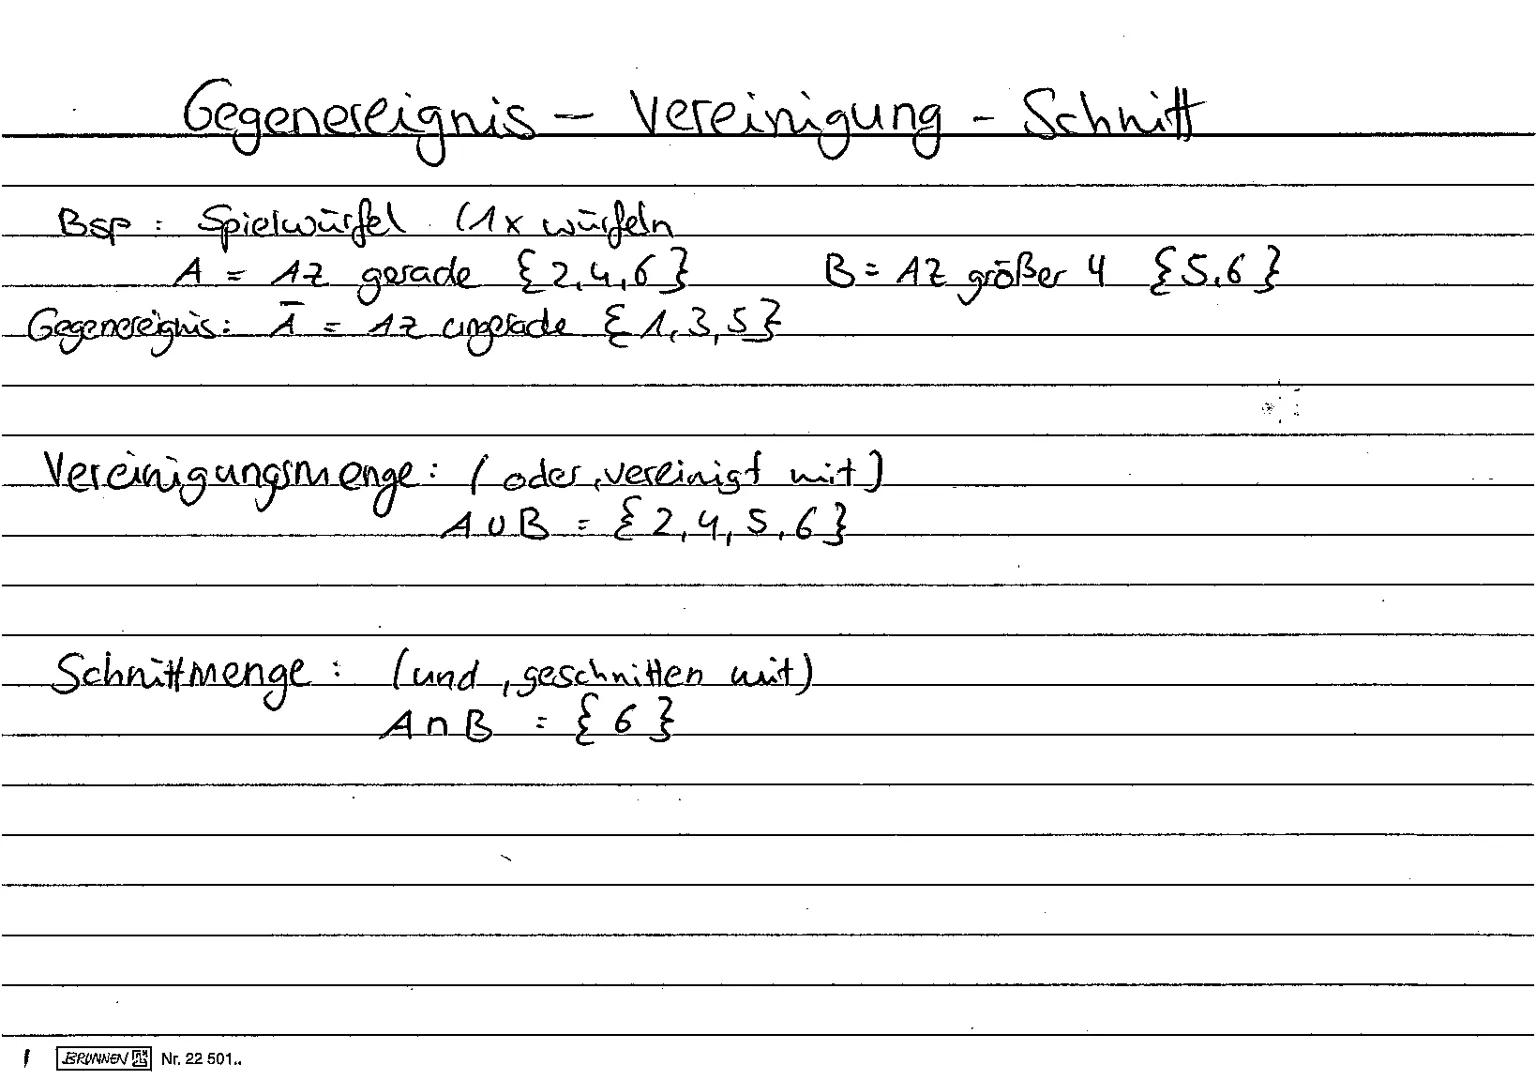 Gegenereignis – Vereinigung - Schnitt
Bsp : Spielwürfel (1x würfeln
A = AZ gerade {2,4,6} B = AZ größer 4 {5,6}
Gegenereignis: A̅ = AZ ungerade {1,3,5}
Vereinigungsmenge: (oder, vereinigt mit)
A ∪ B = {2,4,5,6}
Schnittmenge : (und, geschnitten mit)
A ∩ B = {6}
BRUNNEN Nr. 22 501..